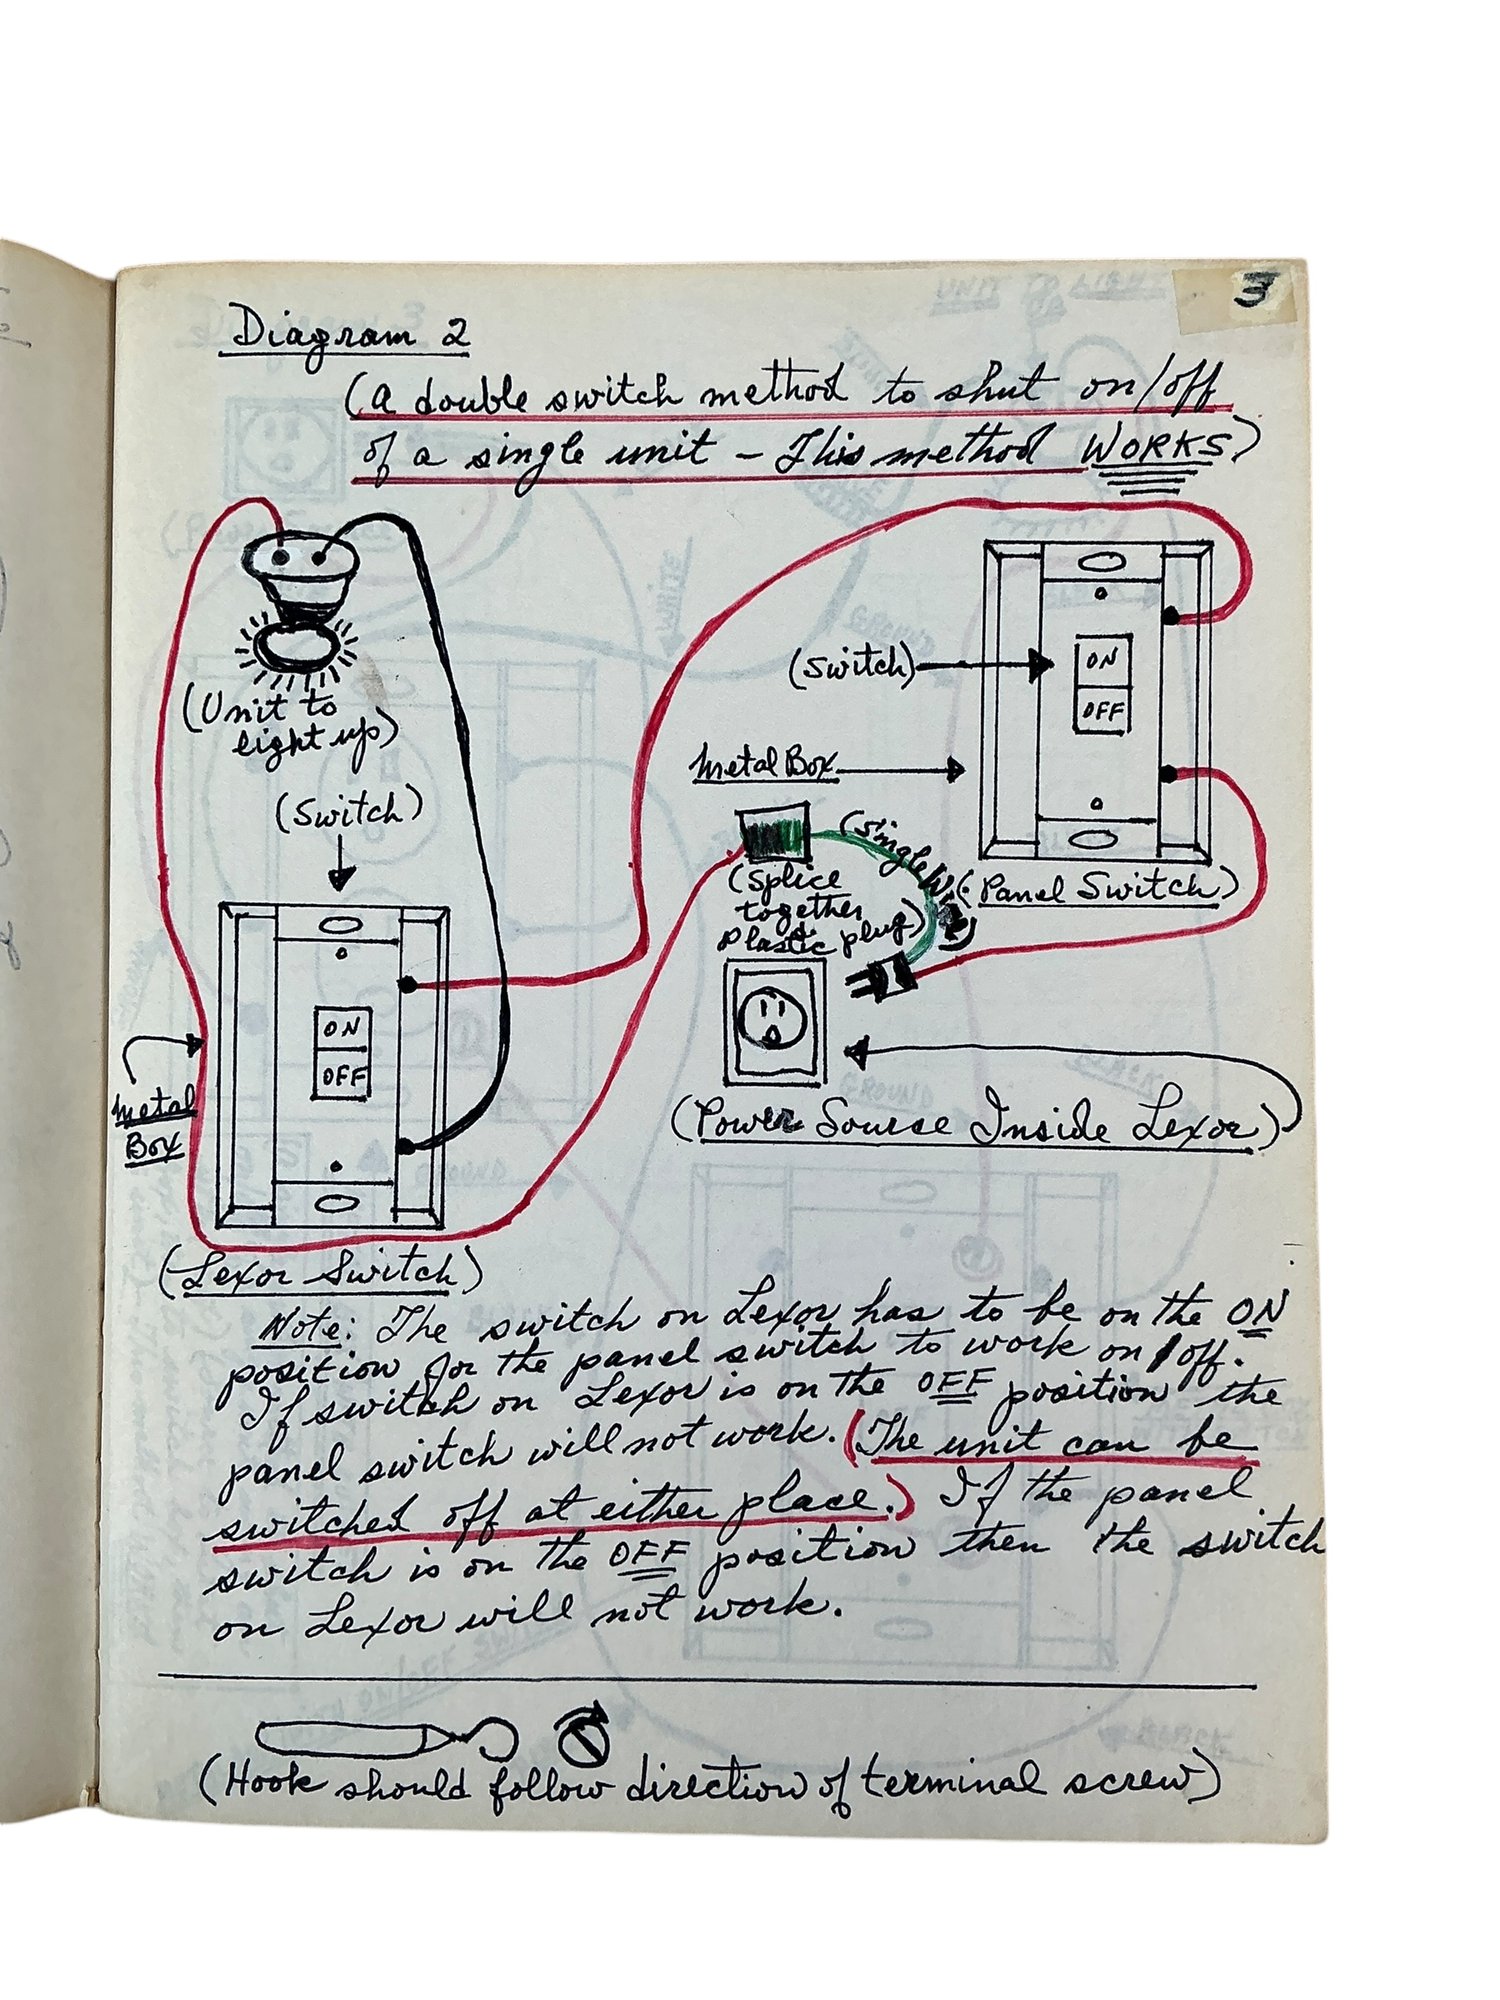 3
Diagram 2
(A double switch method to shut on/off
of a single unit - This method WORKS)
(Unit to
light up)
(Switch)
ON
OFF
Metal
Box
(Lexor Switch)
(Switch)
ON
OFF
Metal Box
(Panel Switch)
(Single Wire)
(Splice
together
Plastic plug)
(Power Source Inside Lexor)
Note: The switch on Lexor has to be on the ON
position for the panel switch to work on/off.
If switch on Lexor is on the OFF position the
panel switch will not work. (The unit can be
switched off at either place.) If the panel
switch is on the OFF position then the switch
on Lexor will not work.
(Hook should follow direction of terminal screw)